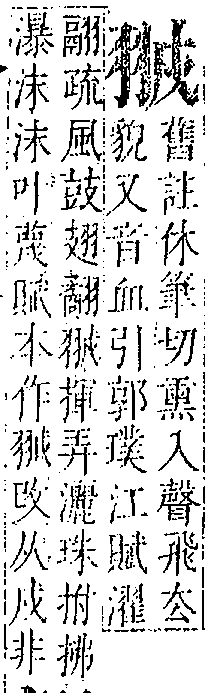 舊註休筆切熏入聲飛去
貌又音血引郭璞江賦濯
翮疏風鼓翅揮弄灑珠拊拂
瀑沫沫叶蔑賦本作改从戍非